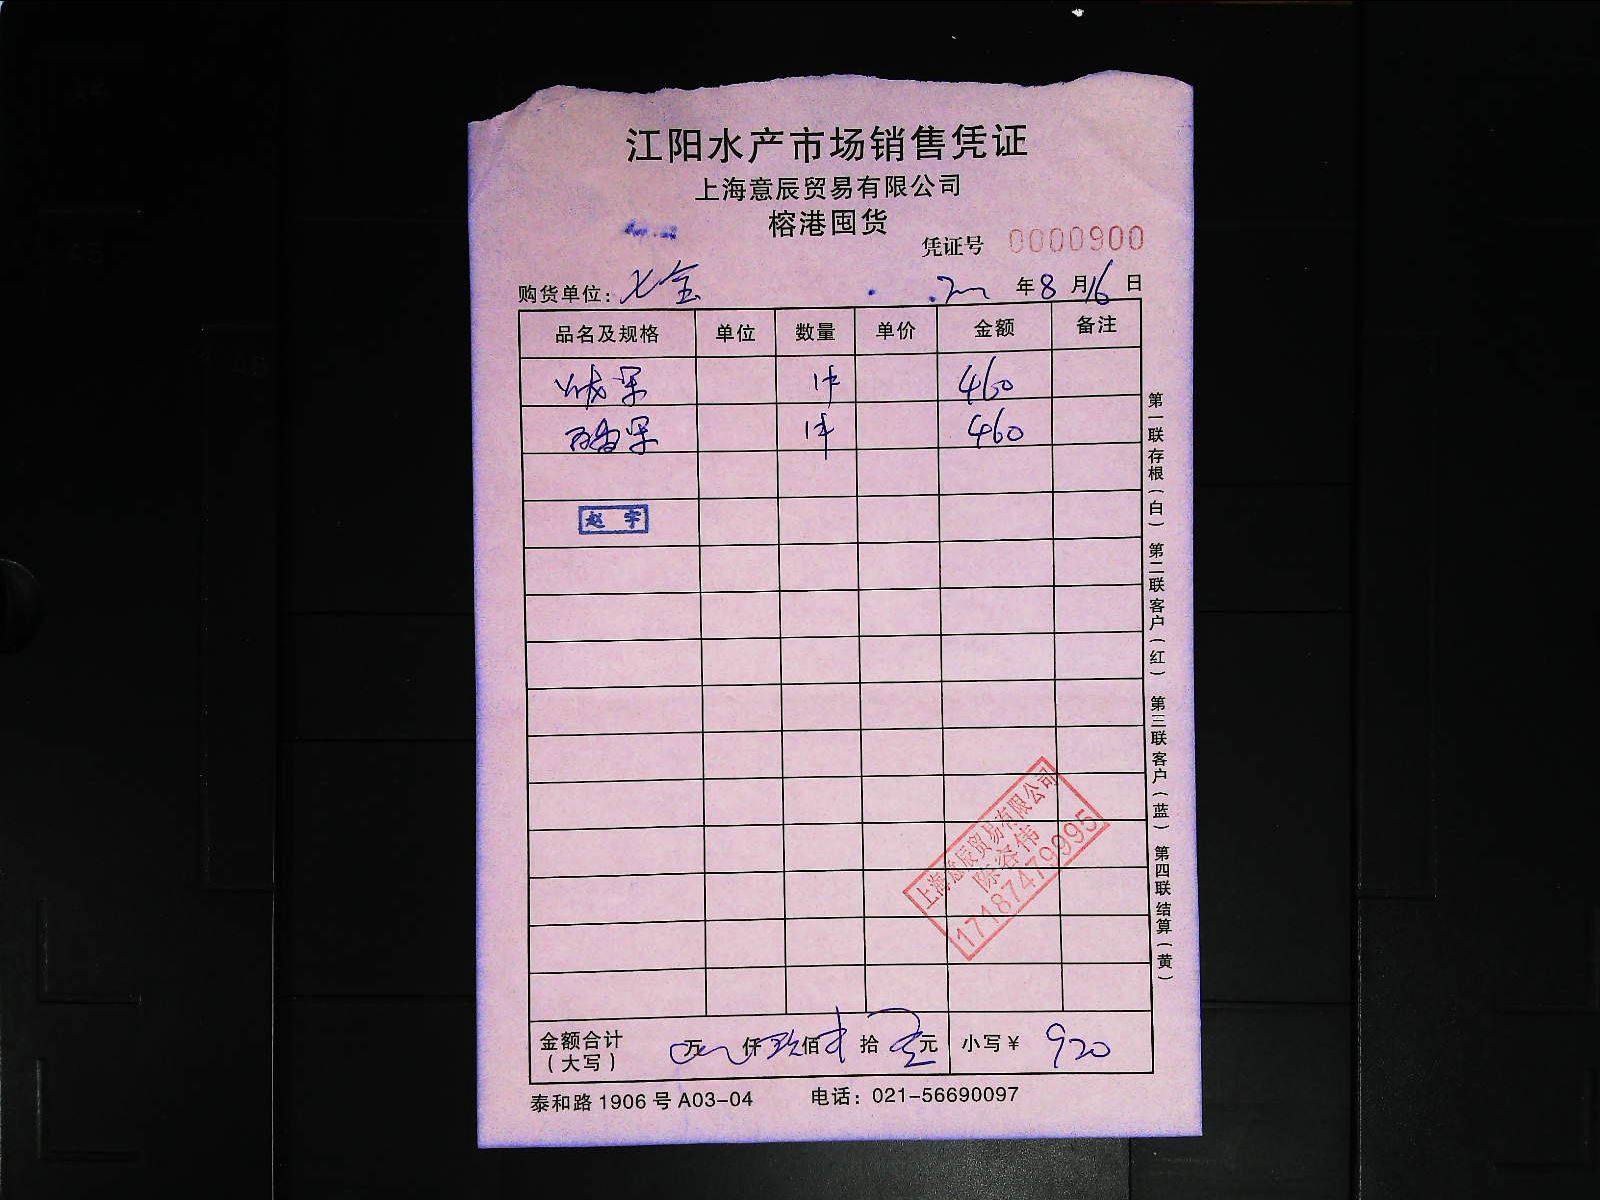 江阳水产市场销售凭证
上海意辰贸易有限公司
榕港囤货
凭证号 0000900
购货单位： 七宝 年 8 月 16 日
品名及规格 单位 数量 单价 金额 备注
1件 460
1件 460
赵宇
上海意辰贸易有限公司
陈容伟
17187479995
金额合计（大写） 万 仟 玖 佰 拾 元 小写￥ 920
泰和路1906号A03-04 电话：021-56690097
第一联存根（白） 第二联客户（红） 第三联客户（蓝） 第四联结算（黄）